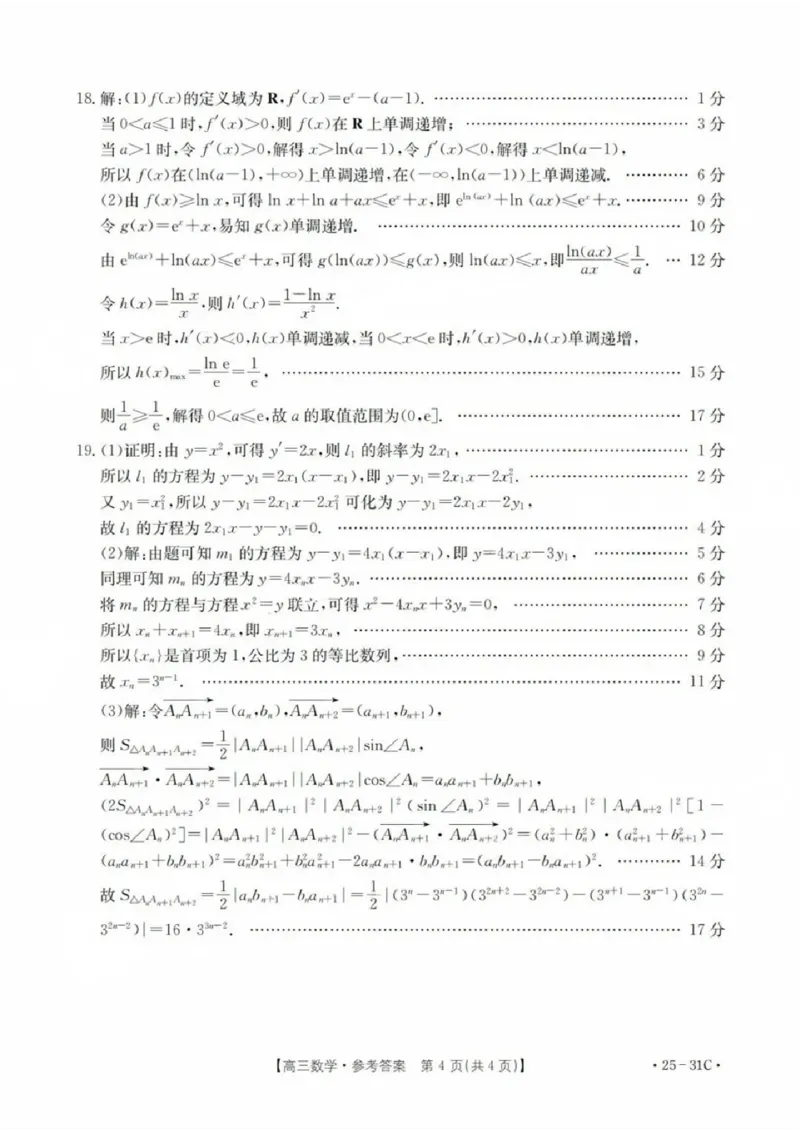 18. 解:(1)f(x)的定义域为 R,f′(x)=eˣ−(a−1). ………… 1 分
当 0<a≤1 时,f′(x)>0,则 f(x)在 R 上单调递增; ………… 3 分
当 a>1 时,令 f′(x)>0,解得 x>ln(a−1),令 f′(x)<0,解得 x<ln(a−1),
所以 f(x)在(ln(a−1),+∞)上单调递增,在(−∞,ln(a−1))上单调递减. ………… 6 分
(2)由 f(x)≥ln x,可得 ln x+ln a+ax≤eˣ+x,即 e^{ln(ax)}+ln (ax)≤eˣ+x. ………… 9 分
令 g(x)=eˣ+x,易知 g(x)单调递增. ………… 10 分
由 e^{ln(ax)}+ln(ax)≤eˣ+x,可得 g(ln(ax))≤g(x),则 ln(ax)≤x,即 ln(ax)/ax ≤ 1/a. … 12 分
令 h(x)=ln x/x,则 h′(x)=(1−ln x)/x².
当 x>e 时,h′(x)<0,h(x)单调递减,当 0<x<e 时,h′(x)>0,h(x)单调递增,
所以 h(x)max=ln e/e=1/e, ………… 15 分
则 1/a≥1/e,解得 0<a≤e,故 a 的取值范围为(0,e]. ………… 17 分
19. (1)证明:由 y=x²,可得 y′=2x,则 l₁ 的斜率为 2x₁, ………… 1 分
所以 l₁ 的方程为 y−y₁=2x₁(x−x₁),即 y−y₁=2x₁x−2x₁². ………… 2 分
又 y₁=x₁²,所以 y−y₁=2x₁x−2x₁² 可化为 y−y₁=2x₁x−2y₁,
故 l₁ 的方程为 2x₁x−y−y₁=0. ………… 4 分
(2)解:由题可知 m₁ 的方程为 y−y₁=4x₁(x−x₁),即 y=4x₁x−3y₁, ………… 5 分
同理可知 mₙ 的方程为 y=4xₙx−3yₙ. ………… 6 分
将 mₙ 的方程与方程 x²=y 联立,可得 x²−4xₙx+3yₙ=0, ………… 7 分
所以 xₙ+xₙ₊₁=4xₙ,即 xₙ₊₁=3xₙ, ………… 8 分
所以{xₙ}是首项为 1,公比为 3 的等比数列, ………… 9 分
故 xₙ=3ⁿ⁻¹. ………… 11 分
(3)解:令→AₙAₙ₊₁=(aₙ,bₙ),→AₙAₙ₊₂=(aₙ₊₁,bₙ₊₁),
则 S△AₙAₙ₊₁Aₙ₊₂=1/2|AₙAₙ₊₁||AₙAₙ₊₂|sin∠Aₙ,
→AₙAₙ₊₁·→AₙAₙ₊₂=|AₙAₙ₊₁||AₙAₙ₊₂|cos∠Aₙ=aₙaₙ₊₁+bₙbₙ₊₁,
(2S△AₙAₙ₊₁Aₙ₊₂)²=|AₙAₙ₊₁|²|AₙAₙ₊₂|²(sin∠Aₙ)²=|AₙAₙ₊₁|²|AₙAₙ₊₂|²[1−
(cos∠Aₙ)²]=|AₙAₙ₊₁|²|AₙAₙ₊₂|²−(→AₙAₙ₊₁·→AₙAₙ₊₂)²=(aₙ²+bₙ²)·(aₙ₊₁²+bₙ₊₁²)−
(aₙaₙ₊₁+bₙbₙ₊₁)²=aₙ²bₙ₊₁²+bₙ²aₙ₊₁²−2aₙaₙ₊₁·bₙbₙ₊₁=(aₙbₙ₊₁−bₙaₙ₊₁)². ………… 14 分
故 S△AₙAₙ₊₁Aₙ₊₂=1/2|aₙbₙ₊₁−bₙaₙ₊₁|=1/2|(3ⁿ−3ⁿ⁻¹)(3²ⁿ⁺²−3²ⁿ⁻²)−(3ⁿ⁺¹−3ⁿ⁻¹)(3²ⁿ−
3²ⁿ⁻²)|=16·3³ⁿ⁻². ………… 17 分
【高三数学·参考答案 第 4 页(共 4 页)】 ·25-31C·